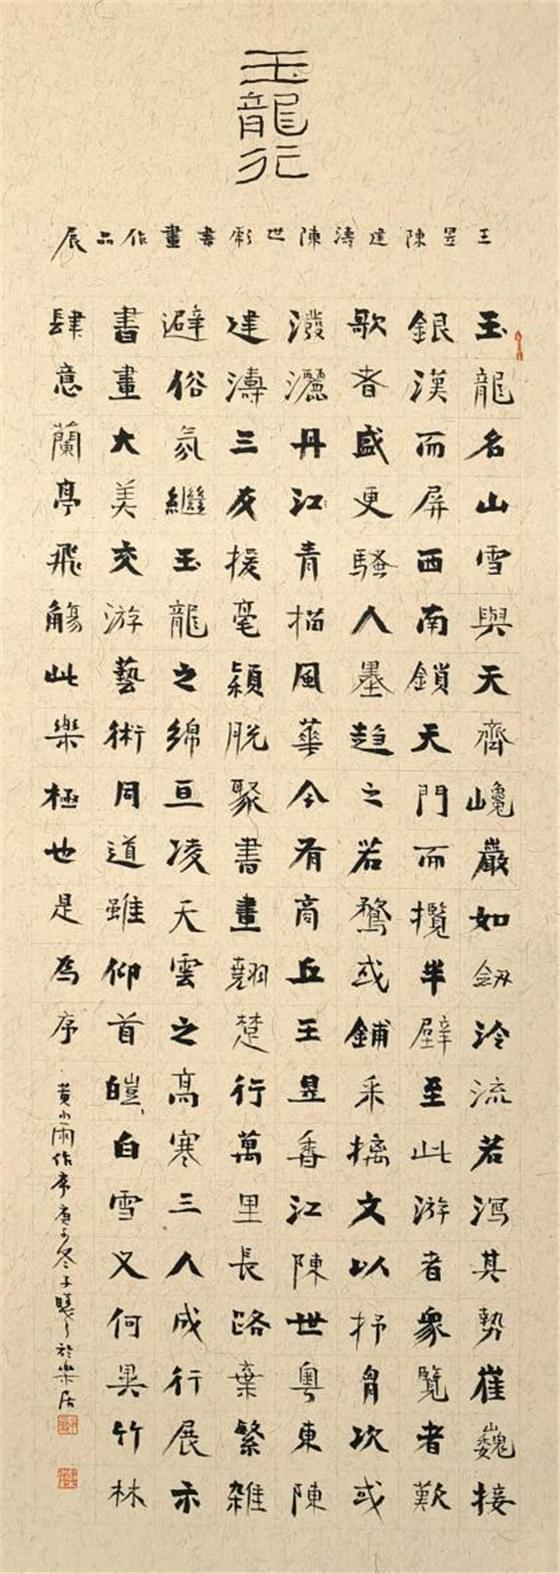 玉龍行
王昱陳建濤陳世書畫作品展
玉龍名山雪與天齊巉巖如劒泠流若瀉其勢崔巍接
銀漢而屏西南鎖天門而攬半壁至此游者衆覽者歎
歌者盛更騷人墨趋之若鶩或鋪采摛文以抒胷次或
潑灑丹江青描風華今有商丘王昱香江陳世粵東陳
建濤三友援毫穎脱聚書畫翹楚行萬里長路棄繁雜
避俗氛繼玉龍之綿亘凌天雲之高寒三人成行展示
書畫大美交游藝術同道雖仰首皚、白雪又何異竹林
肆意蘭亭飛觴此樂極也是為序
黄小雨作序庚子冬子曦於樂居